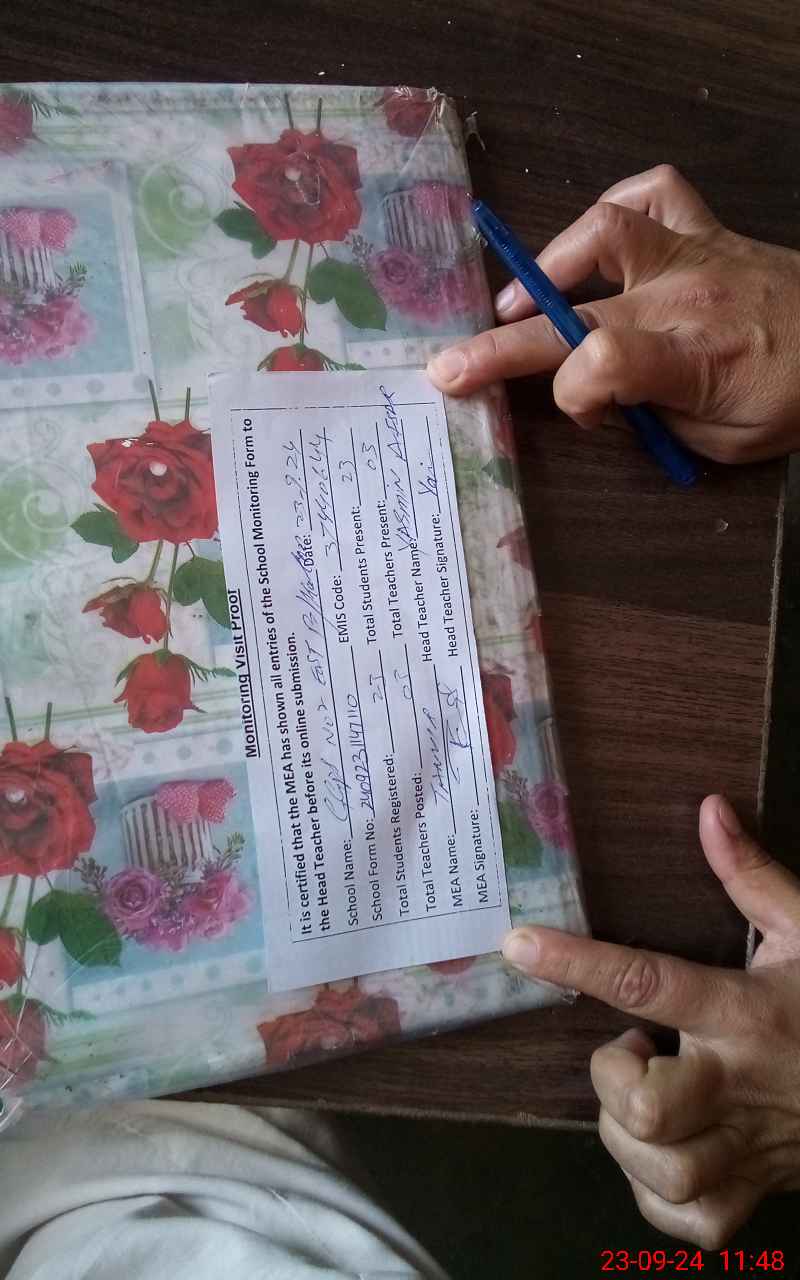 Monitoring Visit Proof
It is certified that the MEA has shown all entries of the School Monitoring Form to
the Head Teacher before its online submission.
School Name: GGPS No 2 East Date: 23.9.24
School Form No: EMIS Code:
Total Students Registered: 23 Total Students Present: 23
Total Teachers Posted: 03 Total Teachers Present: 03
MEA Name: Head Teacher Name: YASMIN
MEA Signature: Head Teacher Signature:
23-09-24 11:48